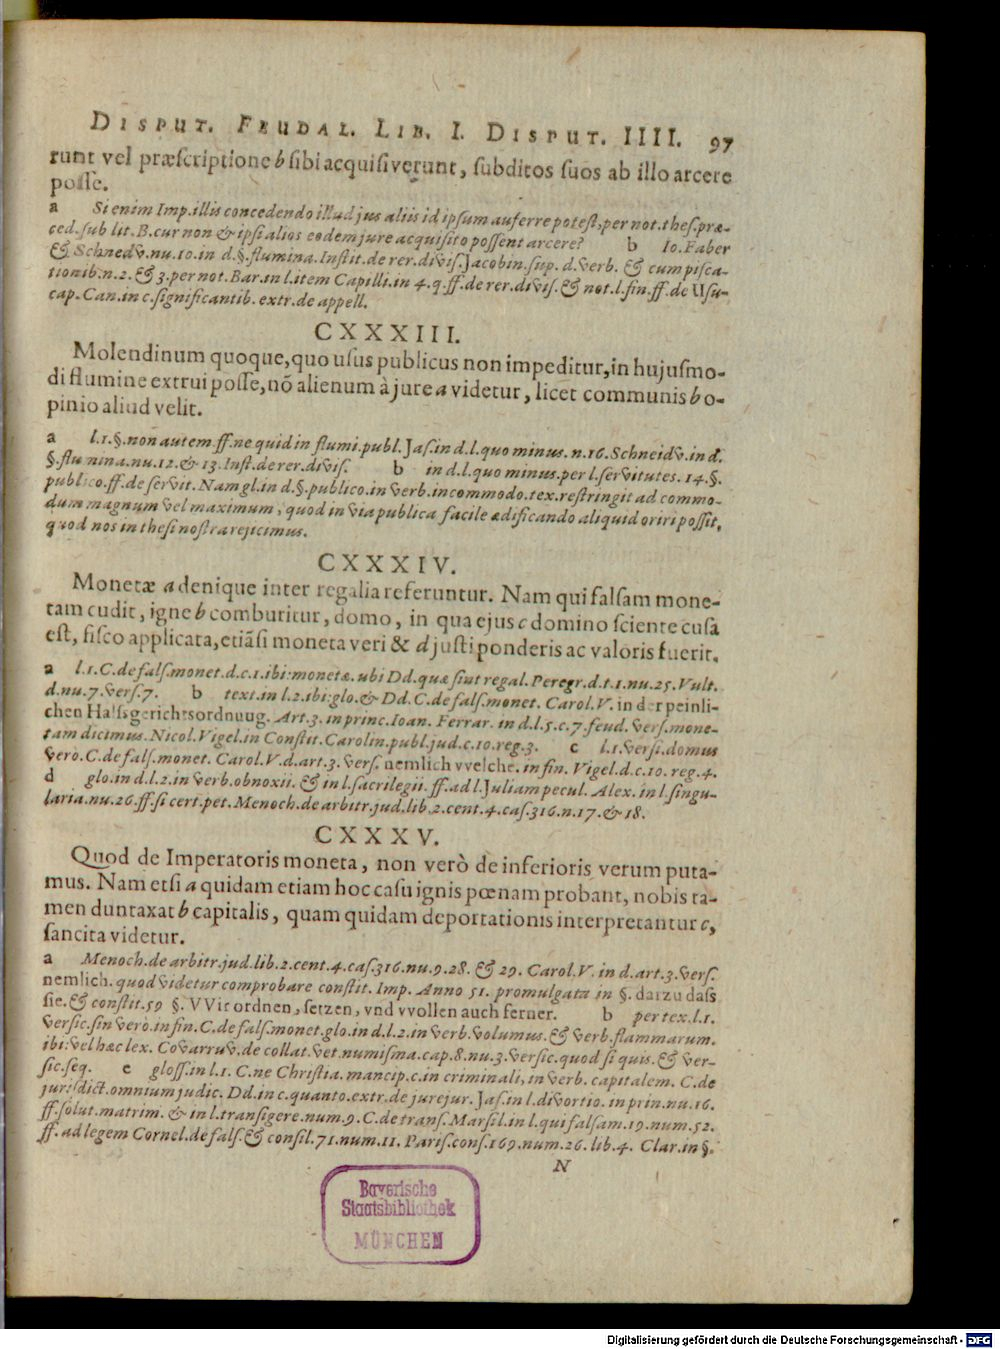 DISPUT. FEUDAL. LIB. I. DISPUT. IIII. 97
runt vel præſcriptione b ſibi acquiſiverunt, ſubditos ſuos ab illo arcere
poſſe.
a Si enim Imp. illis concedendo illud jus aliis id ipſum auferre poteſt, per not. theſ. præ-
ced. ſub lit. B. cur non & ipſi alios eodem jure acquiſito poſſent arcere? b Io. Faber
& Schnedv. nu. 10. in d. §. flumina. Inſtit. de rer. diviſ. Jacobin. ſup. d. verb. & cum piſca-
tionib. n. 2. & 3. per not. Bar. in l. item Capilli. in 4. q. ff. de rer. diviſ. & not. l. fin. ff. de Uſu-
cap. Can. in c. ſignificantib. extr. de appell.
CXXXIII.
Molendinum quoque, quo uſus publicus non impeditur, in hujuſmo-
di flumine extrui poſſe, nõ alienum à jure a videtur, licet communis b o-
pinio aliud velit.
a l. 1. §. non autem. ff. ne quid in flumi. publ. Jaſ. in d. l. quo minus. n. 16. Schneidv. in d.
§. flumina. nu. 12. & 13. Inſt. de rer. diviſ. b in d. l. quo minus. per l. ſervitutes. 14. §.
publico. ff. de ſervit. Nam gl. in d. §. publico. in verb. incommodo. tex. reſtringit ad commo-
dum magnum vel maximum, quod in via publica facile ædificando aliquid oriri poſſit,
quod nos in theſi noſtra rejicimus.
CXXXIV.
Monetæ a denique inter regalia referuntur. Nam qui falſam mone-
tam cudit, igne b comburitur, domo, in qua ejus c domino ſciente cuſa
eſt, fiſco applicata, etiãſi moneta veri & d juſti ponderis ac valoris fuerit.
a l. 1. C. de falſ. monet. d. c. 1. ibi: monetæ. ubi Dd. quæ ſint regal. Peregr. d. t. 1. nu. 25. Vult.
d. nu. 7. verſ. 7. b text. in l. 2. ibi: glo. & Dd. C. de falſ. monet. Carol. V. in der peinli-
chen Halſsgerichtsordnuug. Art. 3. in princ. Ioan. Ferrar. in d. l. 5. c. 7. feud. verſ. mone-
tam dicimus. Nicol. Vigel. in Conſtit. Carolin. publ. jud. c. 10. reg. 3. c l. 1. verſi. domus
vero. C. de falſ. monet. Carol. V. d. art. 3. verſ. nemlich vvelche. in fin. Vigel. d. c. 10. reg. 4.
d glo. in d. l. 2. in verb. obnoxii. & in l. ſacrilegii. ff. ad l. Juliam pecul. Alex. in l. ſingu-
laria. nu. 26. ff. ſi cert. pet. Menoch. de arbitr. jud. lib. 2. cent. 4. caſ. 316. n. 17. & 18.
CXXXV.
Quod de Imperatoris moneta, non verò de inferioris verum puta-
mus. Nam etſi a quidam etiam hoc caſu ignis pœnam probant, nobis ta-
men duntaxat b capitalis, quam quidam deportationis interpretantur c,
ſancita videtur.
a Menoch. de arbitr. jud. lib. 2. cent. 4. caſ. 316. nu. 9. 28. & 29. Carol. V. in d. art. 3. verſ.
nemlich. quod videtur comprobare conſtit. Imp. Anno 51. promulgata in §. darzu daſs
ſie. & conſtit. 59 §. VVir ordnen, ſetzen, vnd vvollen auch ferner. b per tex. l. 1.
verſic. ſin verò. in fin. C. de falſ. monet. glo. in d. l. 2. in verb. volumus. & verb. flammarum.
ibi: vel hæc lex. Covarruv. de collat. vet. numiſma. cap. 8. nu. 3. verſic. quod ſi quis. & ver-
ſic. ſeq. c gloſſ. in l. 1. C. ne Chriſtia. mancip. c. in criminali, in verb. capitalem. C. de
jurisdict. omnium judic. Dd. in c. quanto. extr. de jurejur. Jaſ. in l. divortio. in prin. nu. 16.
ff. ſolut. matrim. & in l. tranſigere. num. 9. C. de tranſ. Marſil. in l. qui falſam. 19. num. 52.
ff. ad legem Cornel. de falſ. & conſil. 71. num. 11. Pariſ. conſ. 169. num. 26. lib. 4. Clar. in §.
N
Bayerische
Staatsbibliothek
MÜNCHEN
Digitalisierung gefördert durch die Deutsche Forschungsgemeinschaft - DFG